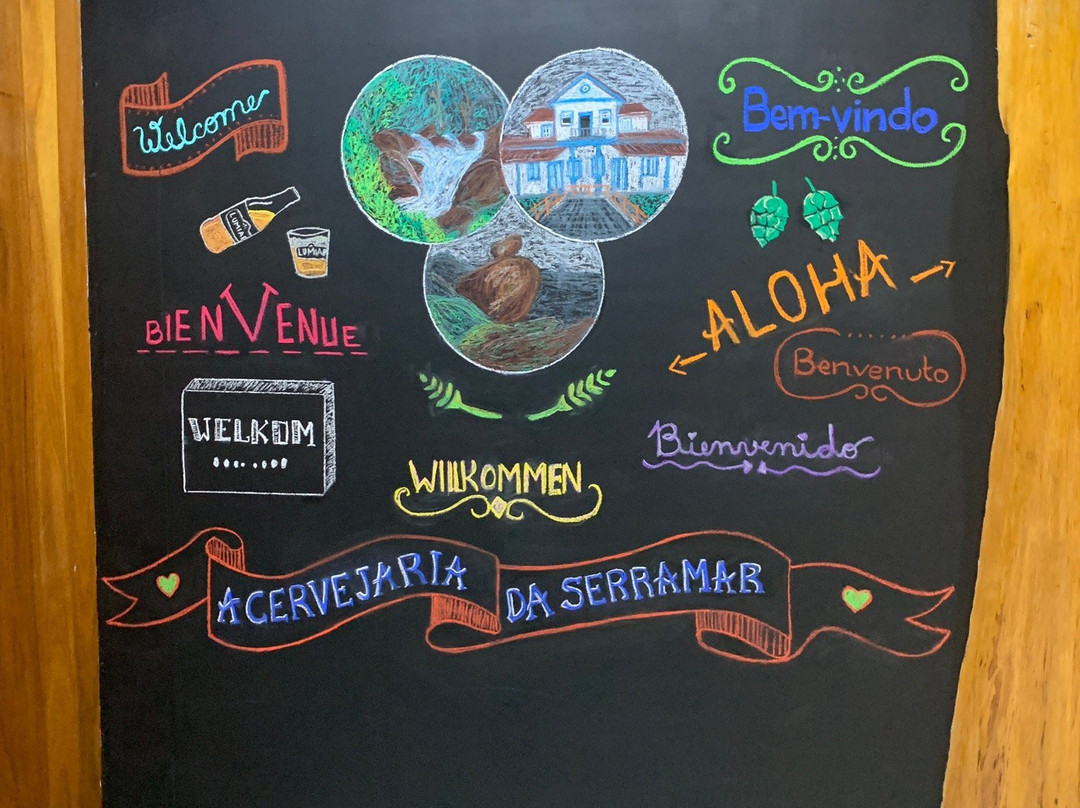 Welcome
Bem-vindo
LUMIAR
LUMIAR
ALOHA
BIENVENUE
Benvenuto
WELKOM
Bienvenido
WILLKOMMEN
A CERVEJARIA
DA SERRAMAR